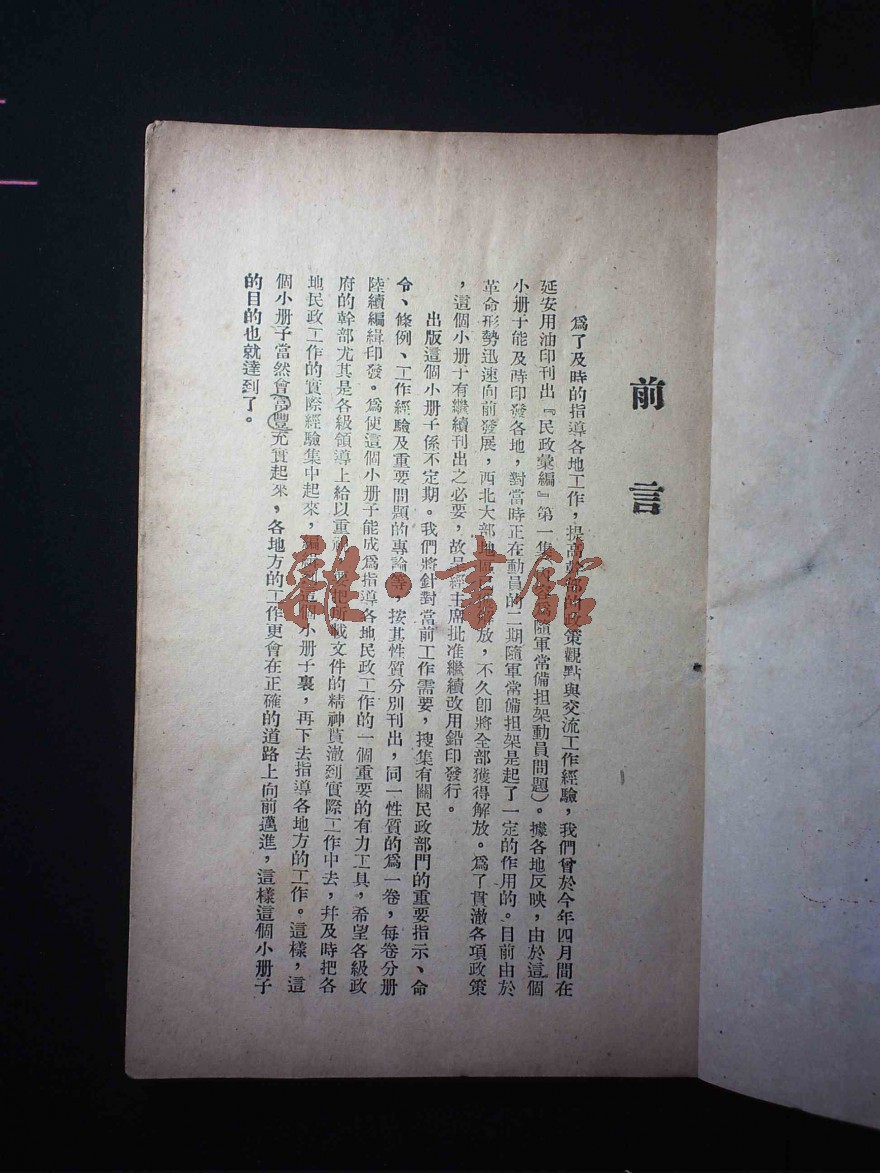 前言
為了及時的指導各地工作，提高幹部的政策觀點與交流工作經驗，我們曾於今年四月間在
延安用油印刊出『民政彙編』第一集隨軍常備担架動員問題）。據各地反映，由於這個
小册子能及時印發各地，對當時正在動員的二期隨軍常備担架是起了一定的作用的。目前由於
革命形勢迅速向前發展，西北大部地區放，不久卽將全部獲得解放。為了貫澈各項政策
，這個小册子有繼續刊出之必要，故經主席批准繼續改用鉛印發行。
出版這個小册子係不定期。我們將針對當前工作需要，搜集有關民政部門的重要指示、命
令、條例、工作經驗及重要問題的專論等，按其性質分別刊出，同一性質的為一卷，每卷分册
陸續編緝印發。為使這個小册子能成為指導各地民政工作的一個重要的有力工具，希望各級政
府的幹部尤其是各級領導上給以重視，把所載文件的精神貫澈到實際工作中去，幷及時把各
地民政工作的實際經驗集中起來，編小册子裏，再下去指導各地方的工作。這樣，這
個小册子當然會富豐充實起來，各地方的工作更會在正確的道路上向前邁進，這樣這個小册子
的目的也就達到了。
雜·書館